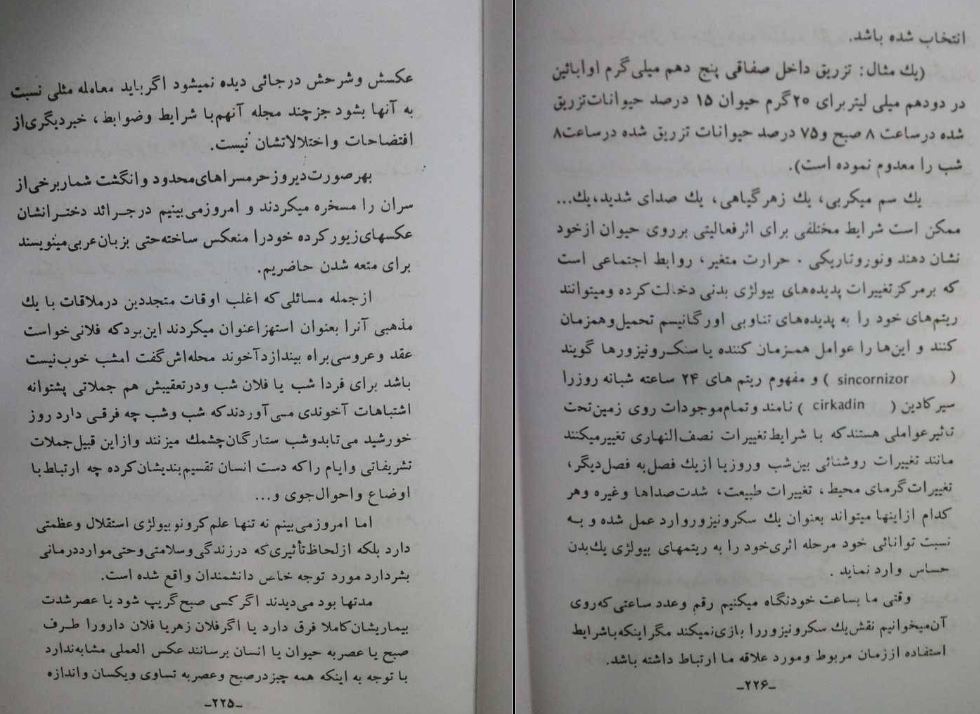 عکسش وشرحش درجائی دیده نمیشود اگرباید معامله مثلی نسبت
به آنها بشود جزچند مجله آنهم با شرایط وضوابط، خبردیگری از
افتضاحات واختلالاتشان نیست.
بهرصورت دیروز حرمسراهای محدود وانگشت شماربرخی از
سران را مسخره میکردند و امروزمی بینیم درجرائد دخترانشان
عکسهای زیورکرده خودرا منعکس ساخته حتی بزبان عربی مینویسند
برای متعه شدن حاضریم.
ازجمله مسائلی که اغلب اوقات متجددین درملاقات با یك
مذهبی آنرا بعنوان استهزاعنوان میکردند این بردکه فلانی خواست
عقد وعروسی براه بیندازدآخوند محله اش گفت امشب خوب نیست
باشد برای فردا شب یا فلان شب ودرتعقیبش هم جملاتی پشتوانه
اشتباهات آخوندی می آوردندکه شب وشب چه فرقی دارد روز
خورشید می تابدوشب ستارگان چشمك میزنند وازاین قبیل جملات
تشریفاتی وایام راکه دست انسان تقسیم بندیشان کرده چه ارتباط با
اوضاع واحوال جوی و...
اما امروزمی بینم نه تنها علم کرونوبیولژی استقلال وعظمتی
دارد بلکه ازلحاظ تأثیری که درزندگی وسلامتی وحتی مواردرمانی
بشردارد مورد توجه خاص دانشمندان واقع شده است.
مدتها بود می دیدند اگرکسی صبح گریپ شود یا عصرشدت
بیماریشان کاملا فرق دارد یا اگرفلان زهریا فلان دارورا طرف
صبح یا عصربه حیوان یا انسان برسانند عکس العملی مشابه ندارد
با توجه به اینکه همه چیزدرصبح وعصربه تساوی ویکسان واندازه
-۲۲۵-
انتخاب شده باشد.
(یك مثال: تزریق داخل صفاقی پنج دهم میلی گرم اوابائین
در دودهم میلی لیتربرای ۲۰گرم حیوان ۱۵ درصد حیوانات تزریق
شده درساعت ۸ صبح و۷۵ درصد حیوانات تزریق شده درساعت۸
شب را معدوم نموده است).
یك سم میکربی، یك زهرگیاهی، یك صدای شدید، یك...
ممکن است شرایط مختلفی برای اثرفعالیتی برروی حیوان ازخود
نشان دهند ونوروتاریکی . حرارت متغیر، روابط اجتماعی است
که برمرکزتغییرات پدیده های بیولژی بدنی دخالت کرده ومیتوانند
ریتم های خود را به پدیده های تناوبی اورگانیسم تحمیل وهمزمان
کنند و این ها را عوامل همزمان کننده یا سنکرونیزورها گویند
( sincornizor ) و مفهوم ریتم های ۲۴ ساعته شبانه روزرا
سیرکادین ( cirkadin ) نامند وتمام موجودات روی زمین تحت
تاثیرعواملی هستندکه با شرایط تغییرات نصف النهاری تغییرمیکنند
مانند تغییرات روشنائی بین شب وروزیا ازیك فصل به فصل دیگر،
تغییرات گرمای محیط، تغییرات طبیعت، شدت صداها وغیره وهر
کدام ازاینها میتواند بعنوان یك سکرونیزوروارد عمل شده و به
نسبت توانائی خود مرحله اثری خود را به ریتمهای بیولژی یك بدن
حساس وارد نماید .
وقتی ما بساعت خودنگاه میکنیم رقم وعدد ساعتی که روی
آن میخوانیم نقش یك سکرونیزوررا بازی نمیکند مگراینکه باشرایط
استفاده اززمان مربوط ومورد علاقه ما ارتباط داشته باشد.
-۲۲۶-